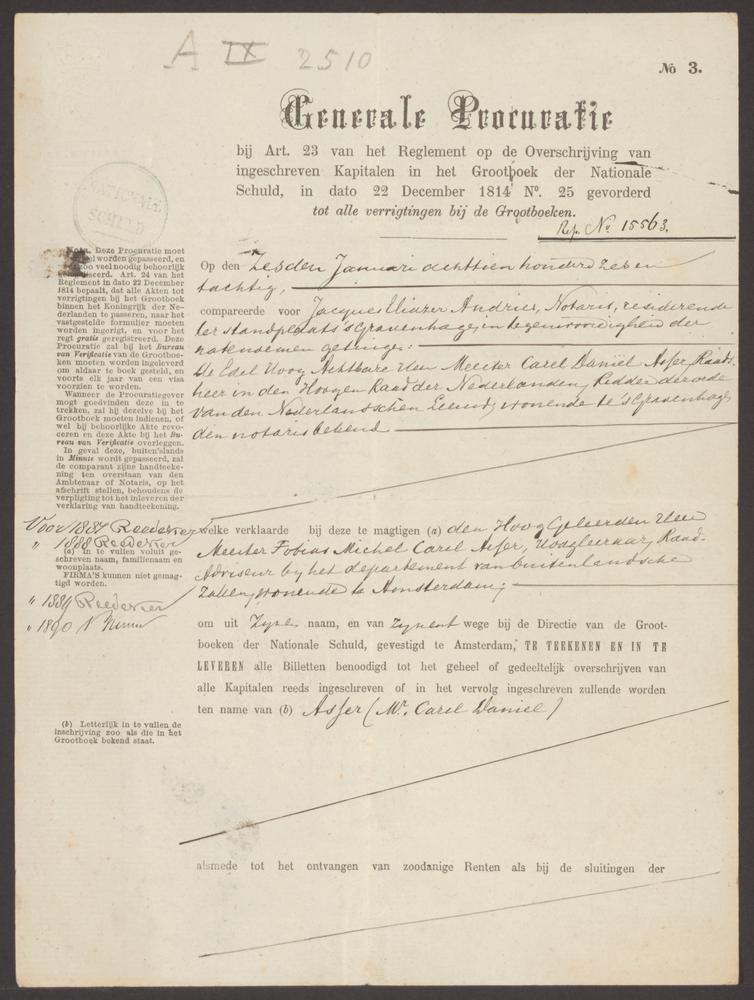 A IX 2510
No 3.
Generale Procuratie
bij Art. 23 van het Reglement op de Overschrijving van
ingeschreven Kapitalen in het Grootboek der Nationale
Schuld, in dato 22 December 1814 No. 25 gevorderd
tot alle verrigtingen bij de Grootboeken.
Rep. No 15563.
NATIONALE
SCHULD
Nota. Deze Procuratie moet
wel worden gepasseerd, en
zoo veel noodig behoorlijk
Art. 24 van het
Reglement in dato 22 December
1814 bepaalt, dat alle Akten tot
verrigtingen bij het Grootboek
binnen het Koningrijk der Ne-
derlanden te passeren, naar het
vastgestelde formulier moeten
worden ingerigt, en voor het
regt gratis geregistreerd. Deze
Procuratie zal bij het Bureau
van Verificatie van de Grootboe-
ken moeten worden ingeleverd
om aldaar te boek gesteld, en
voorts elk jaar van een visa
voorzien te worden.
Wanneer de Procuratiegever
mogt goedvinden deze in te
trekken, zal hij dezelve bij het
Grootboek moeten indienen, of
wel bij behoorlijke Akte revo-
ceren en deze Akte bij het Bu-
reau van Verificatie overleggen.
In geval deze, buiten'slands
in Minute wordt gepasseerd, zal
de comparant zijne handteeke-
ning ten overstaan van den
Ambtenaar of Notaris, op het
afschrift stellen, behoudens de
verpligting tot het inleveren der
verklaring van handteekening.
Op den Zesden Januari achttien honderd zeven en
tachtig,
compareerde voor Jacques Eliazer Andries, Notaris, residerende
ter standplaats 's Gravenhage, in tegenwoordigheid der
natenoemen getuigen:
de Edel Hoog Achtbare Heer Meester Carel Daniël Asser, Raads-
heer in den Hoogen Raad der Nederlanden, Ridder der orde
van den Nederlandschen Leeuw, wonende te 's Gravenhage,
den notaris bekend
Voor 1887
" 1888
(a) In te vullen voluit ge-
schreven naam, familienaam en
woonplaats.
FIRMA'S kunnen niet gemag-
tigd worden.
" 1889
" 1890
welke verklaarde bij deze te magtigen (a) den Hoog Geleerden Heer
Meester Tobias Michel Carel Asser, Hoogleeraar, Raad-
Adviseur bij het departement van buitenlandsche
Zaken, wonende te Amsterdam;
om uit Zijnen naam, en van Zijnent wege bij de Directie van de Groot-
boeken der Nationale Schuld, gevestigd te Amsterdam, TE TEEKENEN EN IN TE
LEVEREN alle Billetten benoodigd tot het geheel of gedeeltelijk overschrijven van
alle Kapitalen reeds ingeschreven of in het vervolg ingeschreven zullende worden
ten name van (b) Asser (Mr. Carel Daniel)
(b) Letterlijk in te vullen de
inschrijving zoo als die in het
Grootboek bekend staat.
alsmede tot het ontvangen van zoodanige Renten als bij de sluitingen der